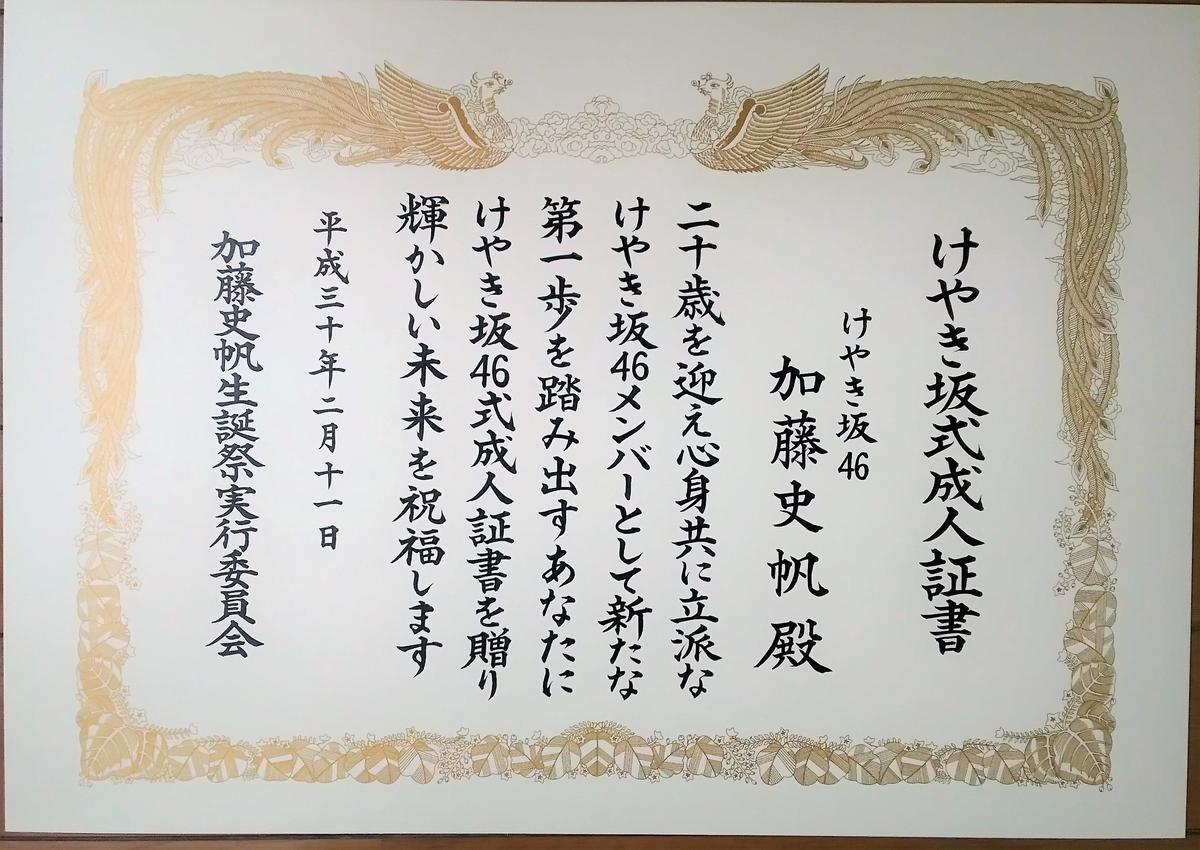 けやき坂式成人証書
けやき坂46
加藤史帆殿
二十歳を迎え心身共に立派な
けやき坂46メンバーとして新たな
第一歩を踏み出すあなたに
けやき坂46式成人証書を贈り
輝かしい未来を祝福します
平成三十年二月十一日
加藤史帆生誕祭実行委員会